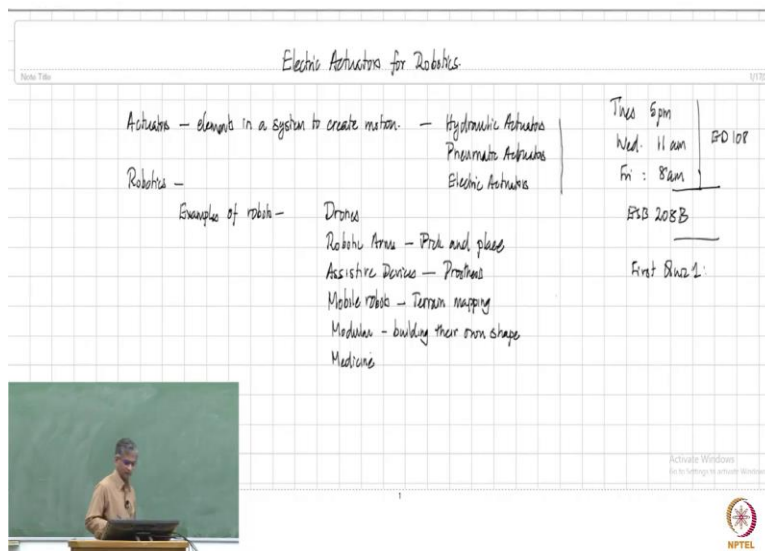 Electric Actuators for Robotics.
Note Title
1/17/2
Actuators – elements in a system to create motion. – Hydraulic Actuators
Pneumatic Actuators
Electric Actuators
Robotics –
Examples of robots – Drones
Robotic Arms – Pick and place
Assistive Devices – Prosthesis
Mobile robots – Terrain mapping
Modular – building their own shape
Medicine
Tues 5pm
Wed. 11 am
Fri : 8am
ED 108
ESB 208B
First Quiz 1:
Activate Windows
Go to Settings to activate Windows
1
NPTEL